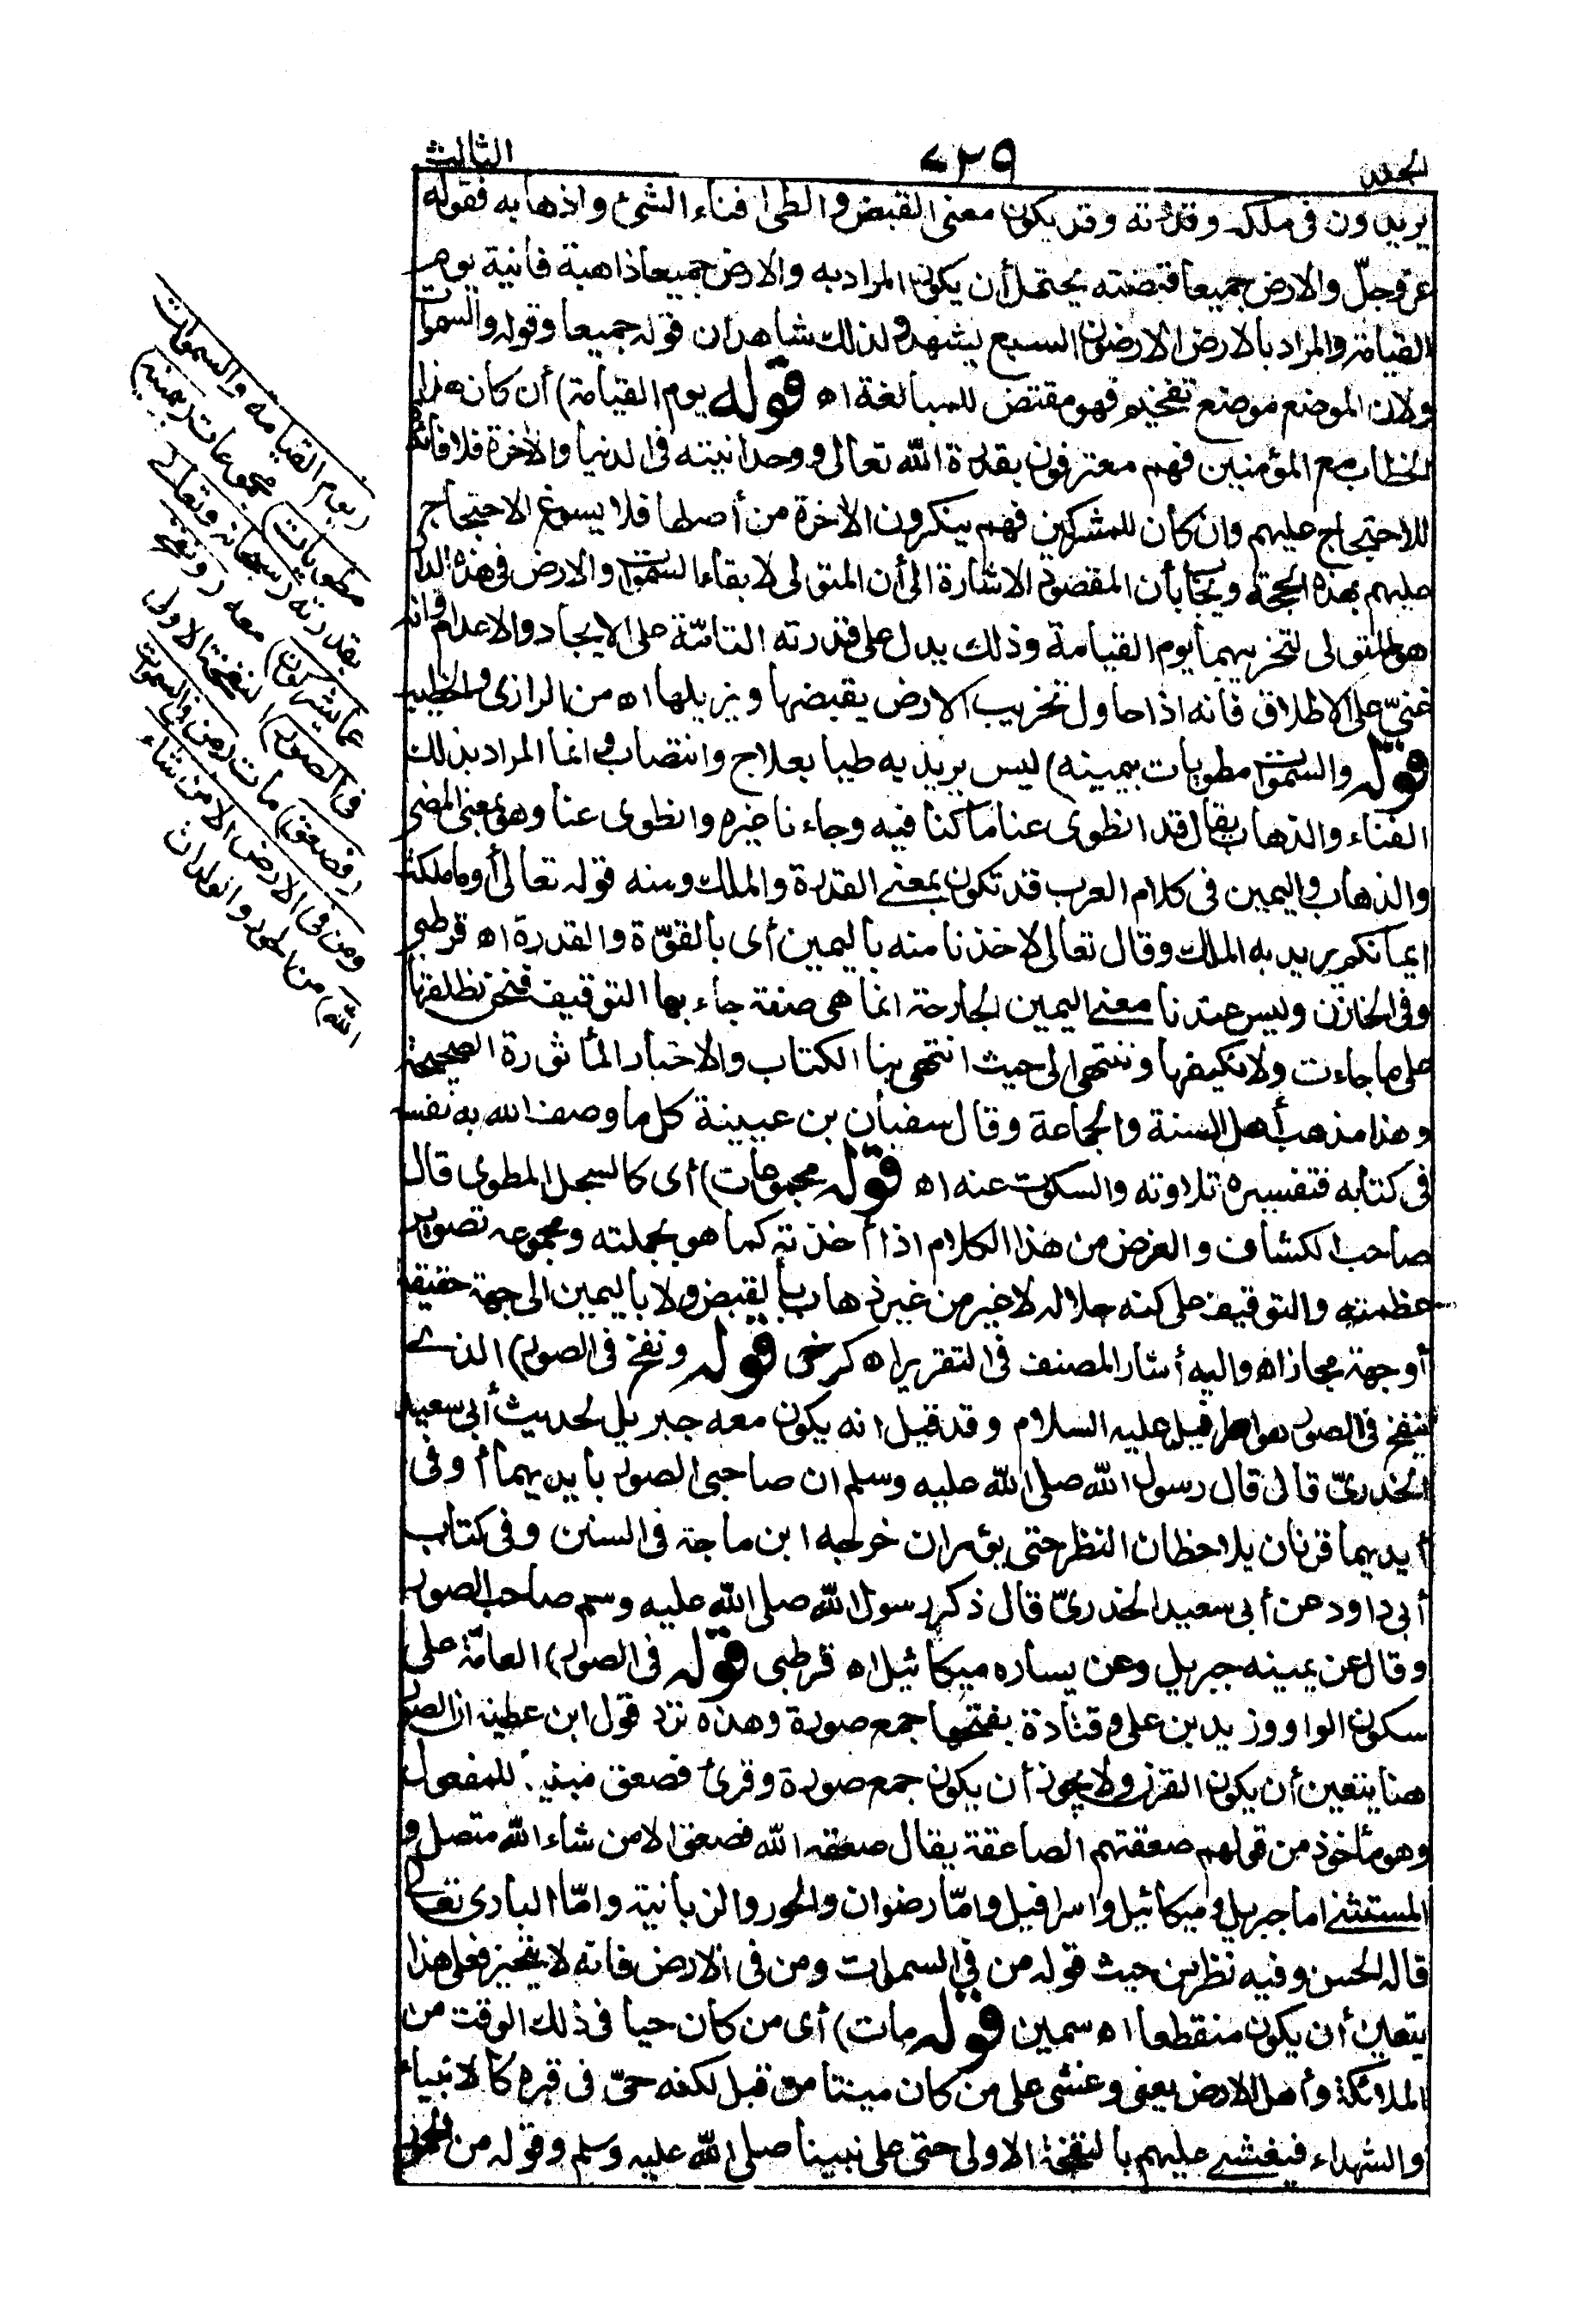 الجلد ٧٢٩ الثالث
يريدون فى ملكه وقدرته وقد يكون معنى القبض والطى افناء الشئ واذهابه فقوله
عز وجلّ والارض جميعا قبضته يحتمل أن يكون المراد به والارض جميعا ذاهبة فانية يوم
القيامة والمراد بالارض الارضون السبع يشهد لذلك شاهدان قوله جميعا وقوله والسموات
ولان الموضع موضع تفخيم فهو مقتض للمبالغة اه قوله يوم القيامة) أن كان هذا
الخطاب مع المؤمنين فهم معترفون بقدرة الله تعالى ووحدانيته فى الدنيا والاخرة فلا فائدة
للاحتجاج عليهم وان كان للمشركين فهم ينكرون الاخرة من أصلها فلا يسوغ الاحتجاج
عليهم بهذه الحجة ويجاب بأن المقصود الاشارة الى أن المتولى لابقاء السموات والارض فى هذه الدار
هو المتولى لتخريبهما يوم القيامة وذلك يدل على قدرته التامّة على الايجاد والاعدام وانه
غنىّ على الاطلاق فانه اذا حاول تخريب الارض يقبضها ويزيلها اه من الرازى والخطيب
قوله والسموات مطويات بيمينه) ليس يريد به طيا بعلاج وانتصاب وانما المراد بذلك
الفناء والذهاب يقال قد انطوى عنا ما كنا فيه وجاءنا غيره وانطوى عنا وهى بمعنى المضى
والذهاب واليمين فى كلام العرب قد تكون بمعنى القدرة والملك ومنه قوله تعالى أو ما ملكت
ايمانكم يريد به الملك وقال تعالى لاخذنا منه باليمين أى بالقوّة والقدرة اه قرطبى
وفى الخازن وليس عندنا معنى اليمين الجارحة انما هى صفة جاء بها التوقيف فنحن نطلقها
على ما جاءت ولا نكيفها وننتهى الى حيث انتهى بنا الكتاب والاخبار المأثورة الصحيحة
وهذا مذهب أهل السنة والجماعة وقال سفيان بن عيينة كل ما وصف الله به نفسه
فى كتابه فتفسيره تلاوته والسكوت عنه اه قوله مجموعات) أى كالسجل المطوى قال
صاحب الكشاف والغرض من هذا الكلام اذا أخذته كما هو بجملته ومجموعه تصوير
عظمته والتوقيف على كنه جلاله لا غير من غير ذهاب بالقبض ولا باليمين الى جهة حقيقة
أو جهة مجاز اه واليه أشار المصنف فى التقرير اه كرخى قوله ونفخ فى الصور) الذى
ينفخ فى الصور هو اسرافيل عليه السلام وقد قيل انه يكون معه جبريل لحديث أبى سعيد
الخدرىّ قال قال رسول الله صلى الله عليه وسلم ان صاحبى الصور بايديهما أو فى
أيديهما قرنان يلاحظان النظر حتى يؤمران خرجه ابن ماجة فى السنن وفى كتاب
أبى داود عن أبى سعيد الخدرىّ قال ذكر رسول الله صلى الله عليه وسلم صاحب الصور
وقال عن يمينه جبريل وعن يساره ميكائيل اه قرطبى قوله فى الصور) العامّة على
سكون الواو وزيد بن على وقتادة بفتحها جمع صورة وهذه ترد قول ابن عطية ان الصور
هنا يتعين أن يكون القرن ولا يجوز أن يكون جمع صورة وقرئ فصعق مبنيا للمفعول
وهو مأخوذ من قولهم صعقتهم الصاعقة يقال صعقه الله فصعق الا من شاء الله متصل و
المستثنى اما جبريل وميكائيل واسرافيل وامّا رضوان والحور والزبانية وامّا البارى تعالى
قاله الحسن وفيه نظر من حيث قوله من فى السموات ومن فى الارض فانه لا يتحيز فعلى هذا
يتعين أن يكون منقطعا اه سمين قوله مات) أى من كان حيا فى ذلك الوقت من
الملائكة وأهل الارض يعنى وغشى على من كان ميتا من قبل لكنه حىّ فى قبره كالانبياء
والشهداء فيغشى عليهم بالنفخة الاولى حتى على نبينا صلى الله عليه وسلم وقوله من الحور
(يوم القيامة والسموات
مطويات) مجموعات (بيمينه)
بقدرته (سبحانه وتعالى
عما يشركون) معه (ونفخ
فى الصور) النفخة الاولى
(فصعق) مات (من فى السموات
ومن فى الارض الا من شاء
الله) من الحور والولدان